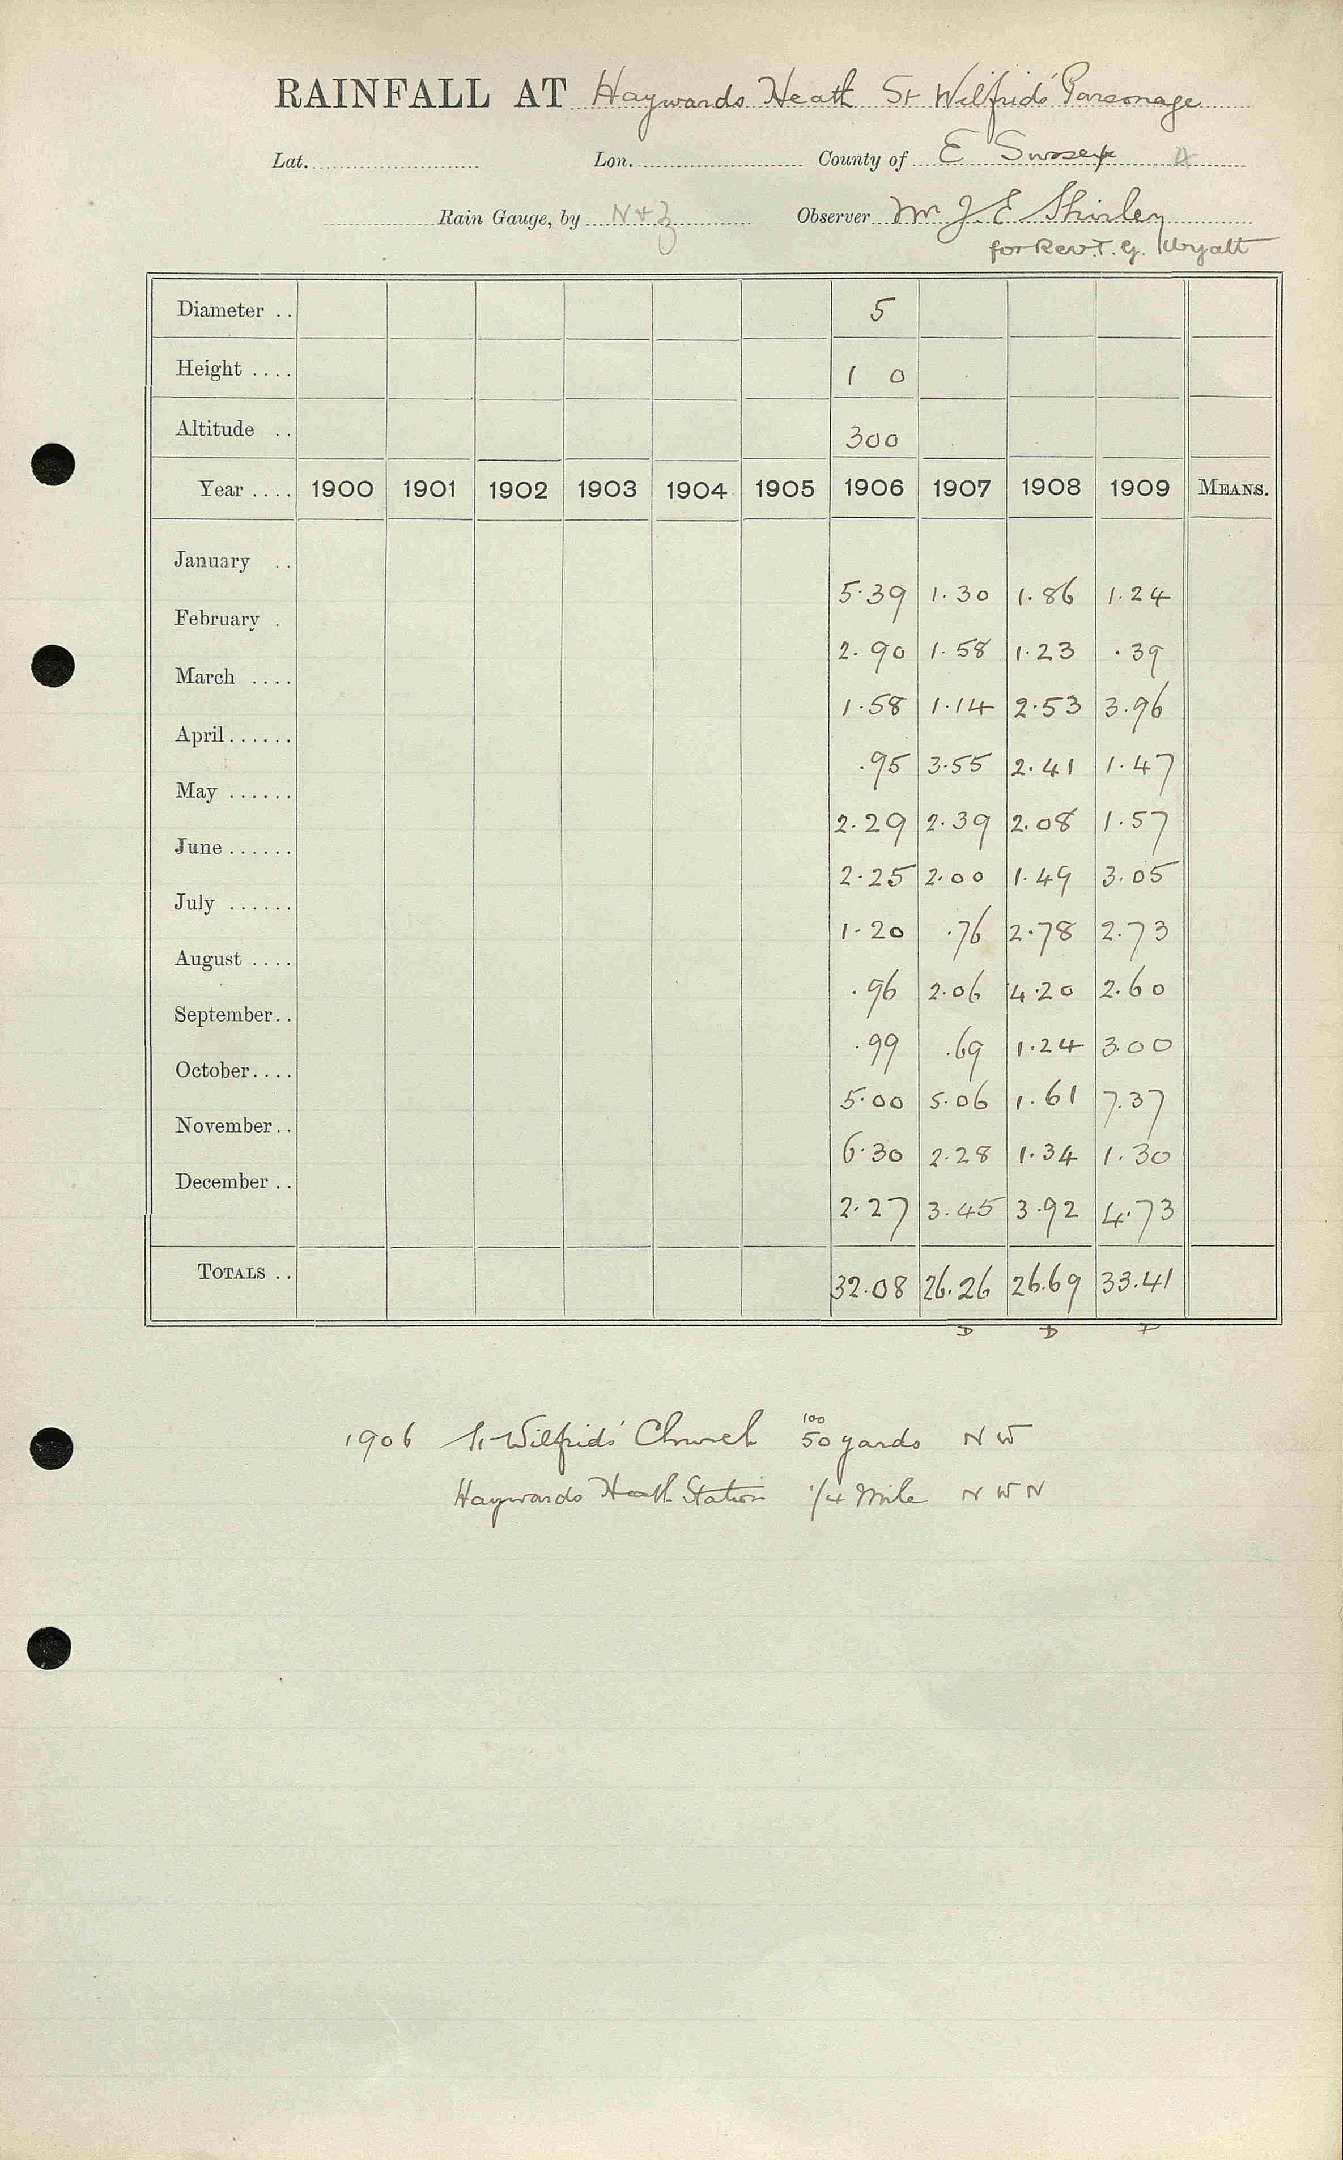 RAINFALL AT Haywards Heath St Wilfrids' Parsonage
Lat. Lon. County of E Sussex 4
Rain Gauge, by N & Z Observer Mr J. E Shirley
for Rev. T. G. Wyatt
Diameter .. 5
Height .... 1 0
Altitude .. 300
Year .... 1900 1901 1902 1903 1904 1905 1906 1907 1908 1909 MEANS.
January .. 5.39 1.30 1.86 1.24
February . 2.90 1.58 1.23 .39
March .... 1.58 1.14 2.53 3.96
April...... .95 3.55 2.41 1.47
May ...... 2.29 2.39 2.08 1.57
June...... 2.25 2.00 1.49 3.05
July ...... 1.20 .76 2.78 2.73
August .... .96 2.06 4.20 2.60
September.. .99 .69 1.24 3.00
October.... 5.00 5.06 1.61 7.37
November.. 6.30 2.28 1.34 1.30
December .. 2.27 3.45 3.92 4.73
TOTALS .. 32.08 26.26 26.69 33.41
D D D
1906 St Wilfrids' Church 100 50 yards N W
Haywards Heath Station 1/4 Mile N W N